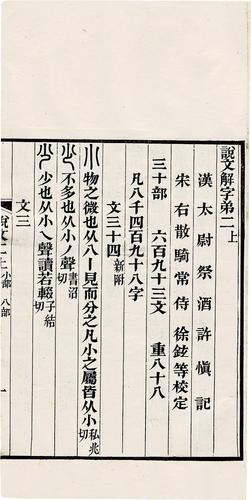 說文解字弟二上
漢太尉祭酒許慎記
宋右散騎常侍徐鉉等校定
三十部 六百九十三文 重八十八
凡八千四百九十八字
文三十四新附
小 物之微也从八丨見而分之凡小之屬皆从小私兆切
少 不多也从小丿聲書沼切
少也从小乀聲讀若輟子結切
文三
說文二上 小部 八部 一